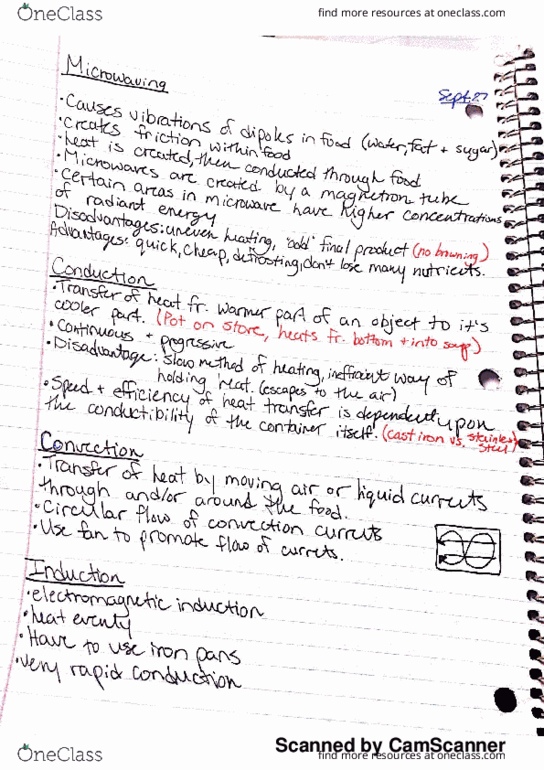 OneClass
find more resources at oneclass.com
Microwaving
Sept 27
• Causes vibrations of dipoles in food (water, fat + sugar)
• Creates friction within food
• heat is created, then conducted through food
• Microwaves are created by a magnetron tube
• Certain areas in microwave have higher concentrations
of radiant energy
Disadvantages: uneven heating, "odd" final product (no browning)
Advantages: quick, cheap, defrosting, don't lose many nutrients.
Conduction
• Transfer of heat fr. warmer part of an object to it's
cooler part. (Pot on stove, heats fr. bottom + into soup)
• Continuous + progressive
• Disadvantage: Slow method of heating, inefficient way of
holding heat. (escapes to the air)
• Speed + efficiency of heat transfer is dependent upon
the conductibility of the container itself. (cast iron vs. stainless
steel)
Convection
• Transfer of heat by moving air or liquid currents
through and/or around the food.
• Circular flow of convection currents
• Use fan to promote flow of currents.
Induction
• electromagnetic induction
• heat evenly
• Have to use iron pans
• very rapid conduction
Scanned by CamScanner
OneClass
find more resources at oneclass.com